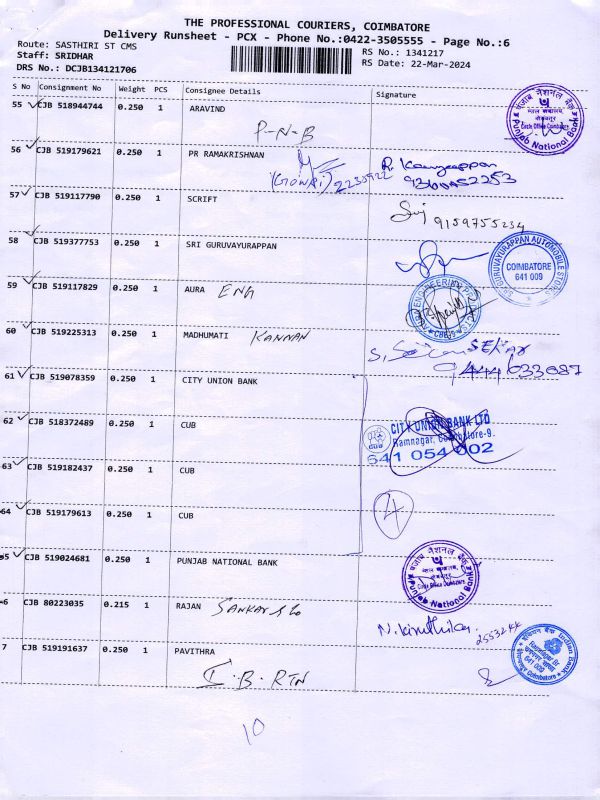 THE PROFESSIONAL COURIERS, COIMBATORE
Delivery Runsheet - PCX - Phone No.:0422-3505555 - Page No.:6
Route: SASTHIRI ST CMS
RS No.: 1341217
Staff: SRIDHAR
RS Date: 22-Mar-2024
DRS No.: DCJB134121706
S No Consignment No Weight PCS Consignee Details Signature
55 CJB 518944744 0.250 1 ARAVIND
P-N-B
पंजाब नैशनल बैंक
Circle Office Coimbatore
Punjab National Bank
56 CJB 519179621 0.250 1 PR RAMAKRISHNAN
57 CJB 519117790 0.250 1 SCRIFT
9159755234
58 CJB 519377753 0.250 1 SRI GURUVAYURAPPAN
GURUVAYURAPPAN AUTOMOBILE
COIMBATORE
641 009
59 CJB 519117829 0.250 1 AURA ENG
60 CJB 519225313 0.250 1 MADHUMATI KANNAN
61 CJB 519078359 0.250 1 CITY UNION BANK
62 CJB 518372489 0.250 1 CUB
CITY UNION BANK LTD
Ramnagar, Coimbatore-9.
641 054 002
63 CJB 519182437 0.250 1 CUB
64 CJB 519179613 0.250 1 CUB
4
65 CJB 519024681 0.250 1 PUNJAB NATIONAL BANK
पंजाब नैशनल बैंक
Circle Office Coimbatore
Punjab National Bank
6 CJB 80223035 0.215 1 RAJAN
N. Kiruthika
7 CJB 519191637 0.250 1 PAVITHRA
I.B.RTN
Indian Bank
641 009
Coimbatore
10